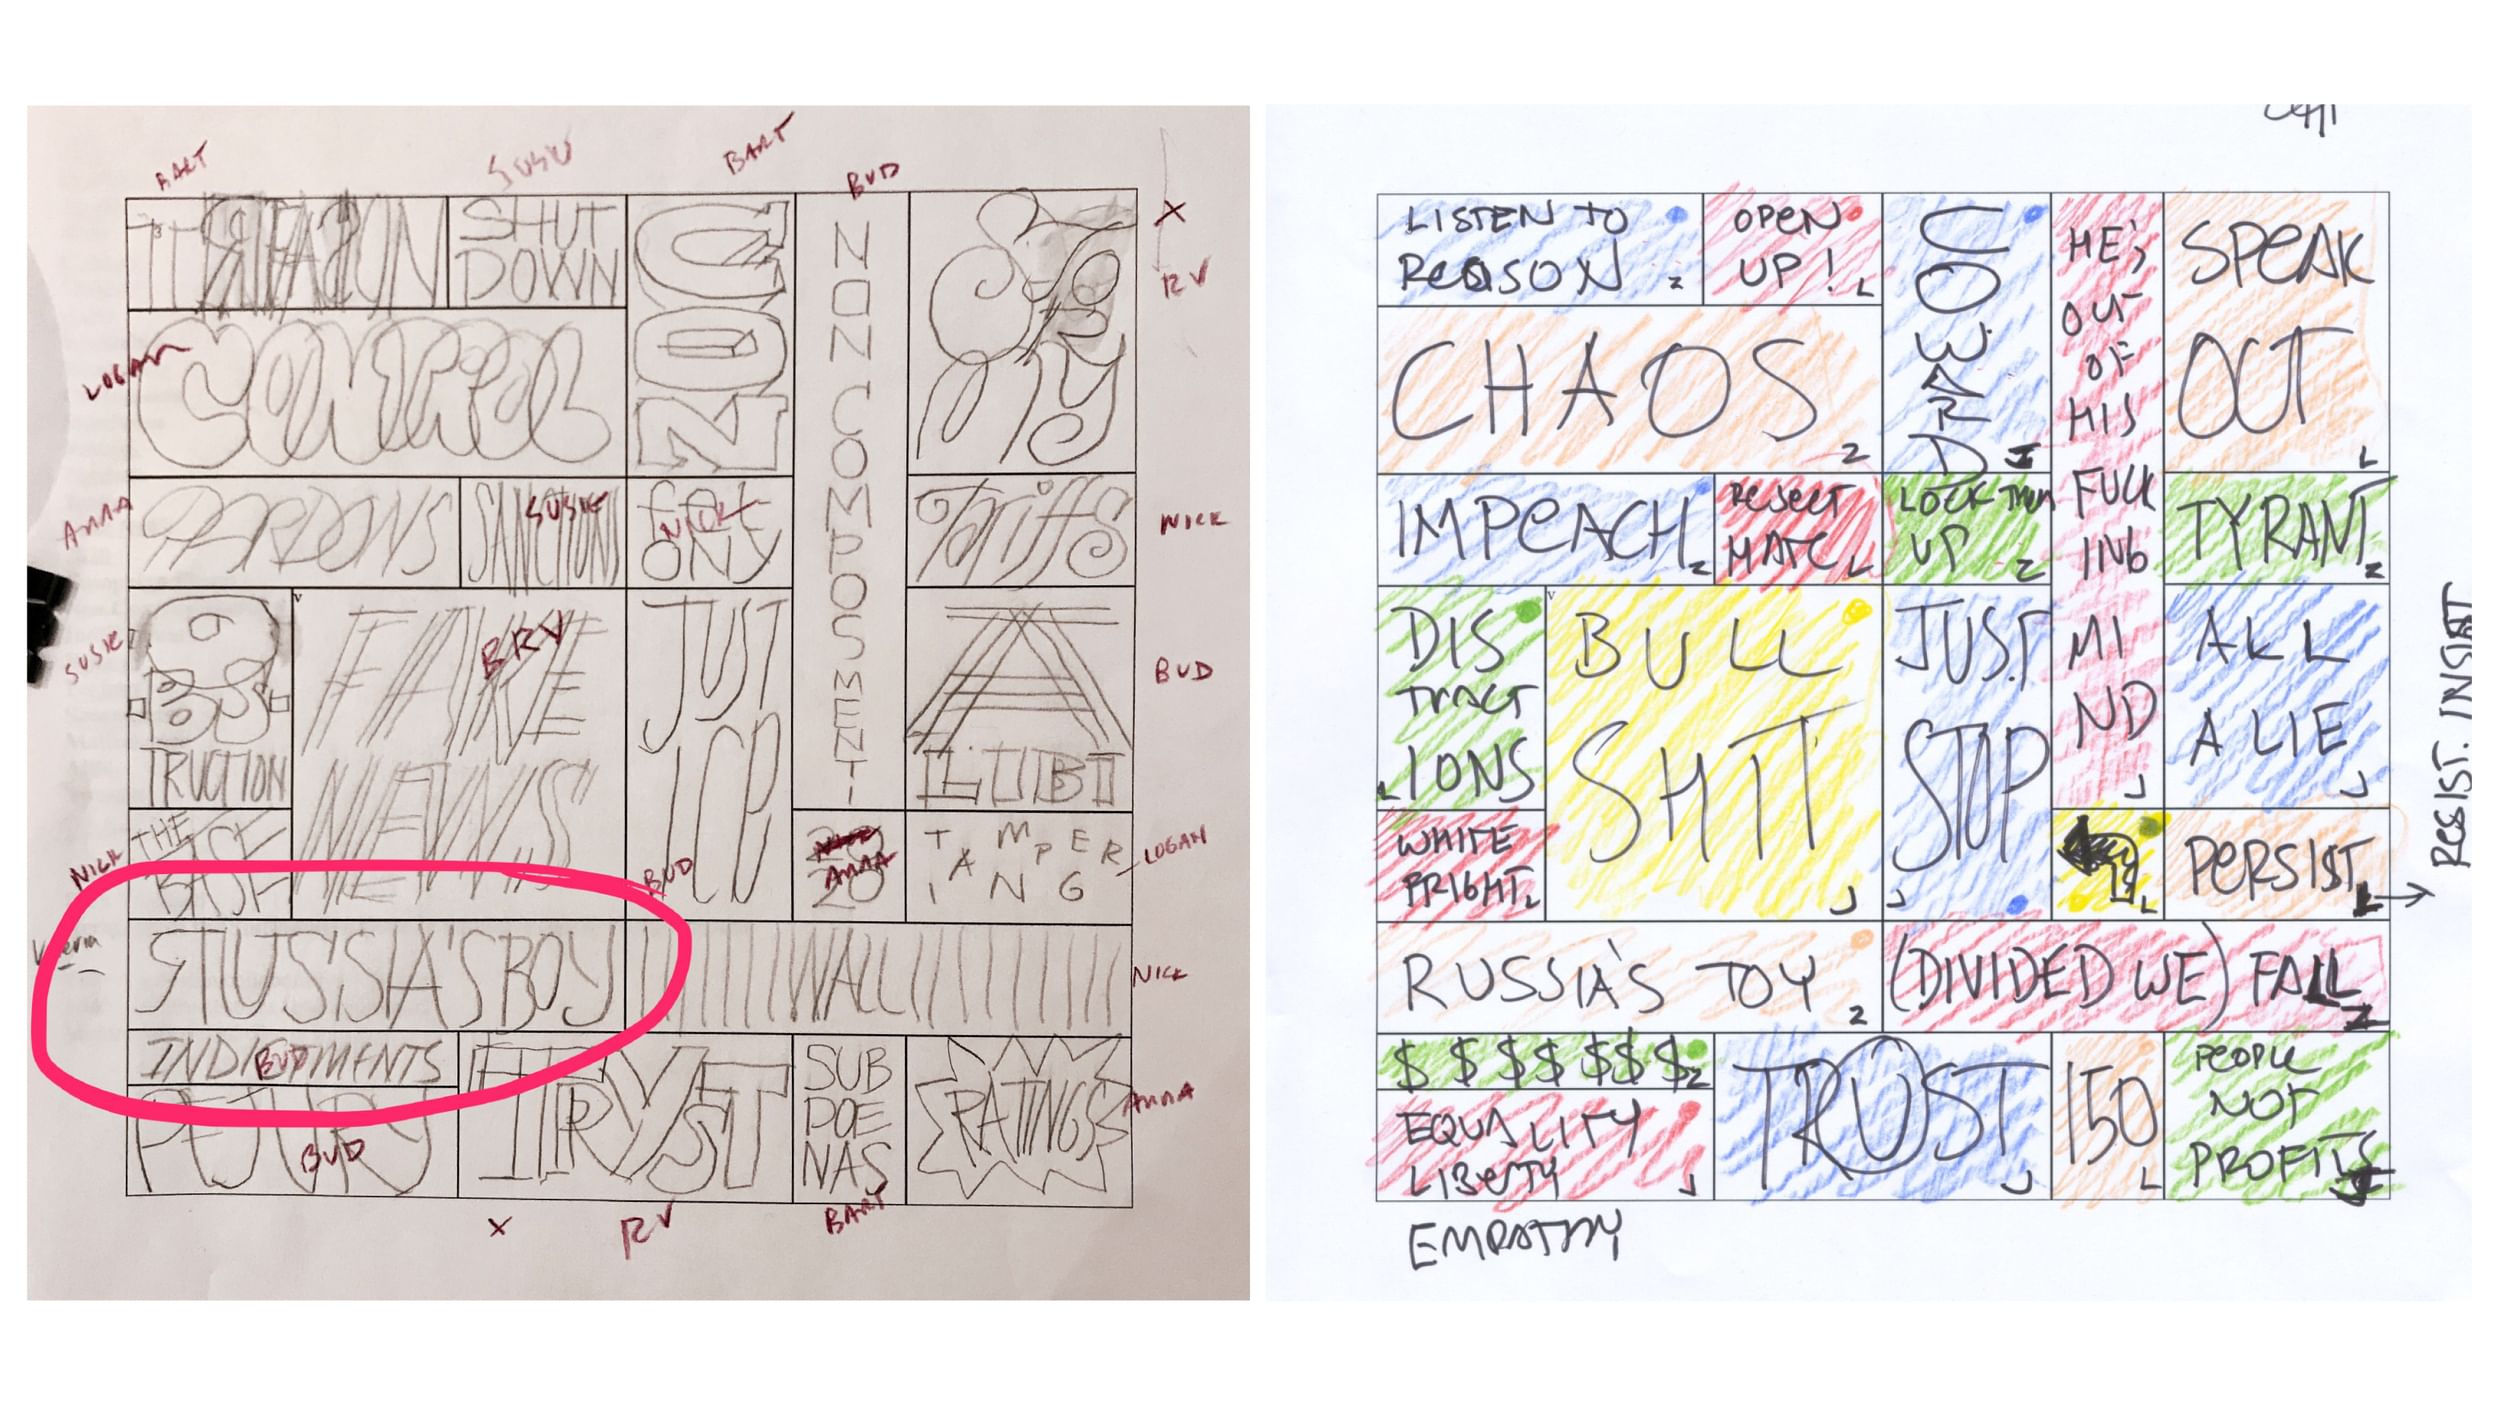 BART
SUSIE
BART
BUD
X
RV
TREASON
SHUT
DOWN
CON
NON COMPOS MENTI
LOGAN
CONTROL
ANNA
PARDONS
SANCTIONS
SUSIE
NICK
ONY
Tariffs
NICK
SUSIE
OBS
TRUCTION
FAKE
NEWS
BRV
JUST
ICE
A
LIBI
BUD
NICK
THE
BASE
BUD
20
20
ANNA
TAMPERING
LOGAN
RUSSIA'S BOY
WALL
NICK
INDICTMENTS
BUD
PEJURY
BUD
TRYST
SUB
POE
NAS
RATINGS
ANNA
X
RV
BART
LISTEN TO
REASON
Z
OPEN
UP!
L
COWARD
J
HE'S
OUT
OF
HIS
FUCK
ING
MI
ND
J
SPEAK
OUT
L
CHAOS
Z
IMPEACH
Z
REJECT
HATE
L
LOCK THEM
UP
Z
TYRANT
Z
DIS
TRACT
IONS
L
BULL
SHIT
J
JUST
STOP
J
ALL
A LIE
J
WHITE
FRIGHT
L
L
PERSIST
L
RESIST. INSIST
RUSSIA'S TOY
Z
(DIVIDED WE) FALL
Z
$ $ $ $ $ $ $
Z
EQUALITY
LIBERTY
J
TRUST
J
150
L
PEOPLE
NOT
PROFITS
J
EMPATHY